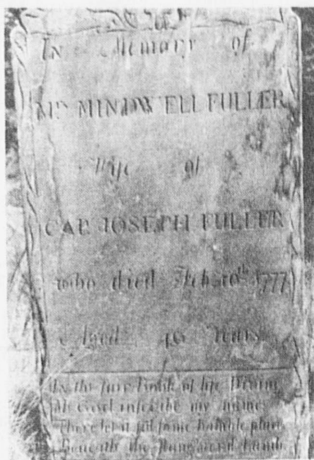 In Memory of
Mrs MINDWELL FULLER
Wife of
CAP. JOSEPH FULLER
who died Feb. 10th 1777
Aged 46 Years
In the fair Book of life Divine
My God inscribe my name
There let it fill some humble place
Beneath the slaughtered Lamb.